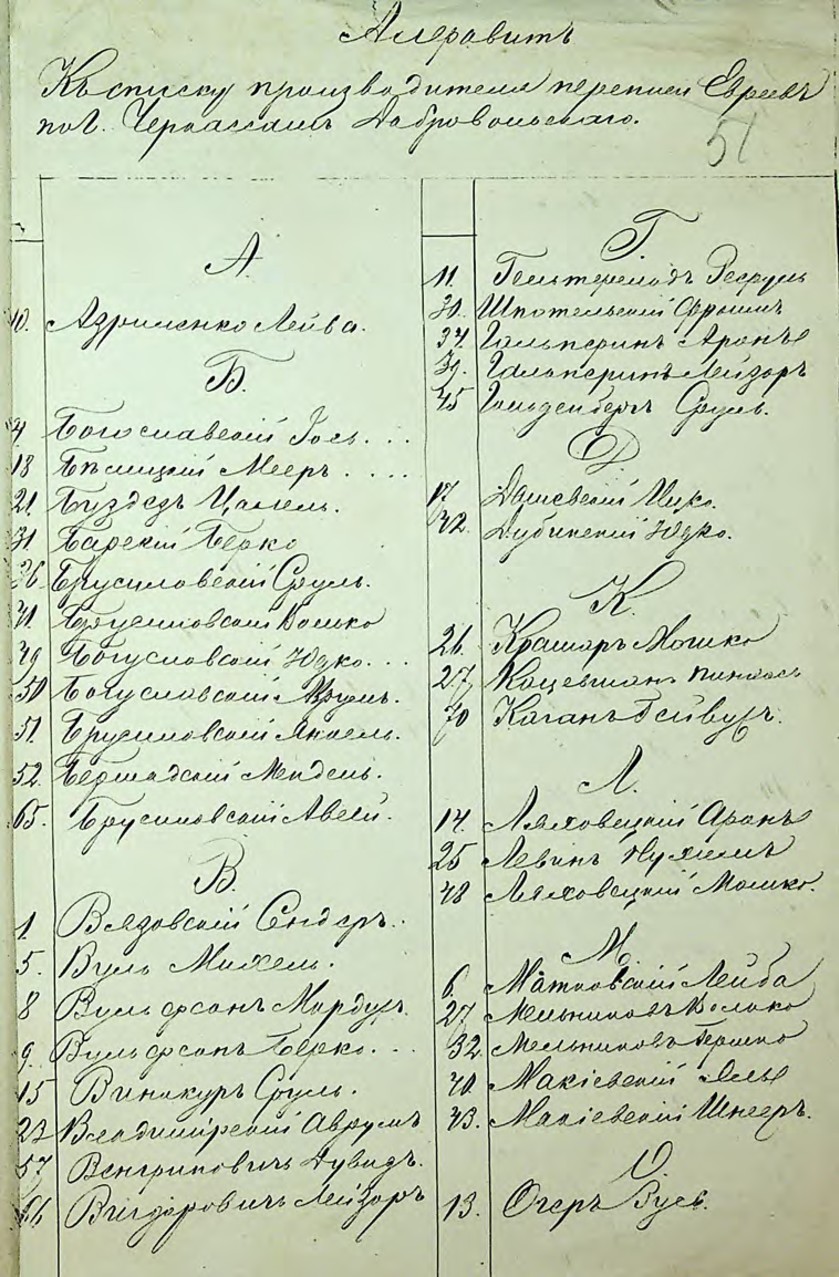 Алфавитъ
Къ списку производителя переписи Евреевъ
по г. Черкассамъ Добровольскаго.
51
А.
10. Азриленко Лейба.
Б.
4 Богуславскій Іось...
18 Бѣлицкій Мееръ....
21. Буздезъ Цалель.
31 Барскій Берко
36 Брусиловскій Сруль.
41. Брусиловскій Волько
49 Богуславскій Юдко...
50 Богуславскій
51. Брусиловскій Янкель.
52. Бершадскій Мендель.
65. Брусиловскій Авель.
В.
1. Вязовскій Сендеръ.
5. Вуль Михель.
8 Вульфсонъ Мордухъ.
9. Вульфсонъ Берко...
15 Винакуръ Сруль.
23 Владимірскій Аврумъ
57 Венгриновичъ Дувидъ.
66 Вигдоровичъ Лейзоръ
Г.
11.
30. Шпотельскій Фроимъ
34. Гальперинъ Аронъ
39. Гальперинъ Лейзоръ
45 Гольденбергъ Сруль.
Д
17 Дашевскій Ицко.
42. Дубинскій Юдко.
К.
26. Крамаръ Мошко
27 Коцевманъ Пинхасъ
70 Каганъ Фейвушъ.
Л.
14. Ляховецкій Аронъ
25 Левинъ Нухимъ
48 Ляховецкій Мошко.
М.
6. Матковскій Лейба
27 Мельниковъ Волько
32 Мельниковъ Гершко
40. Макіевскій Эль
43. Макіевскій Шнееръ.
О.
13. Огеръ Зусь.